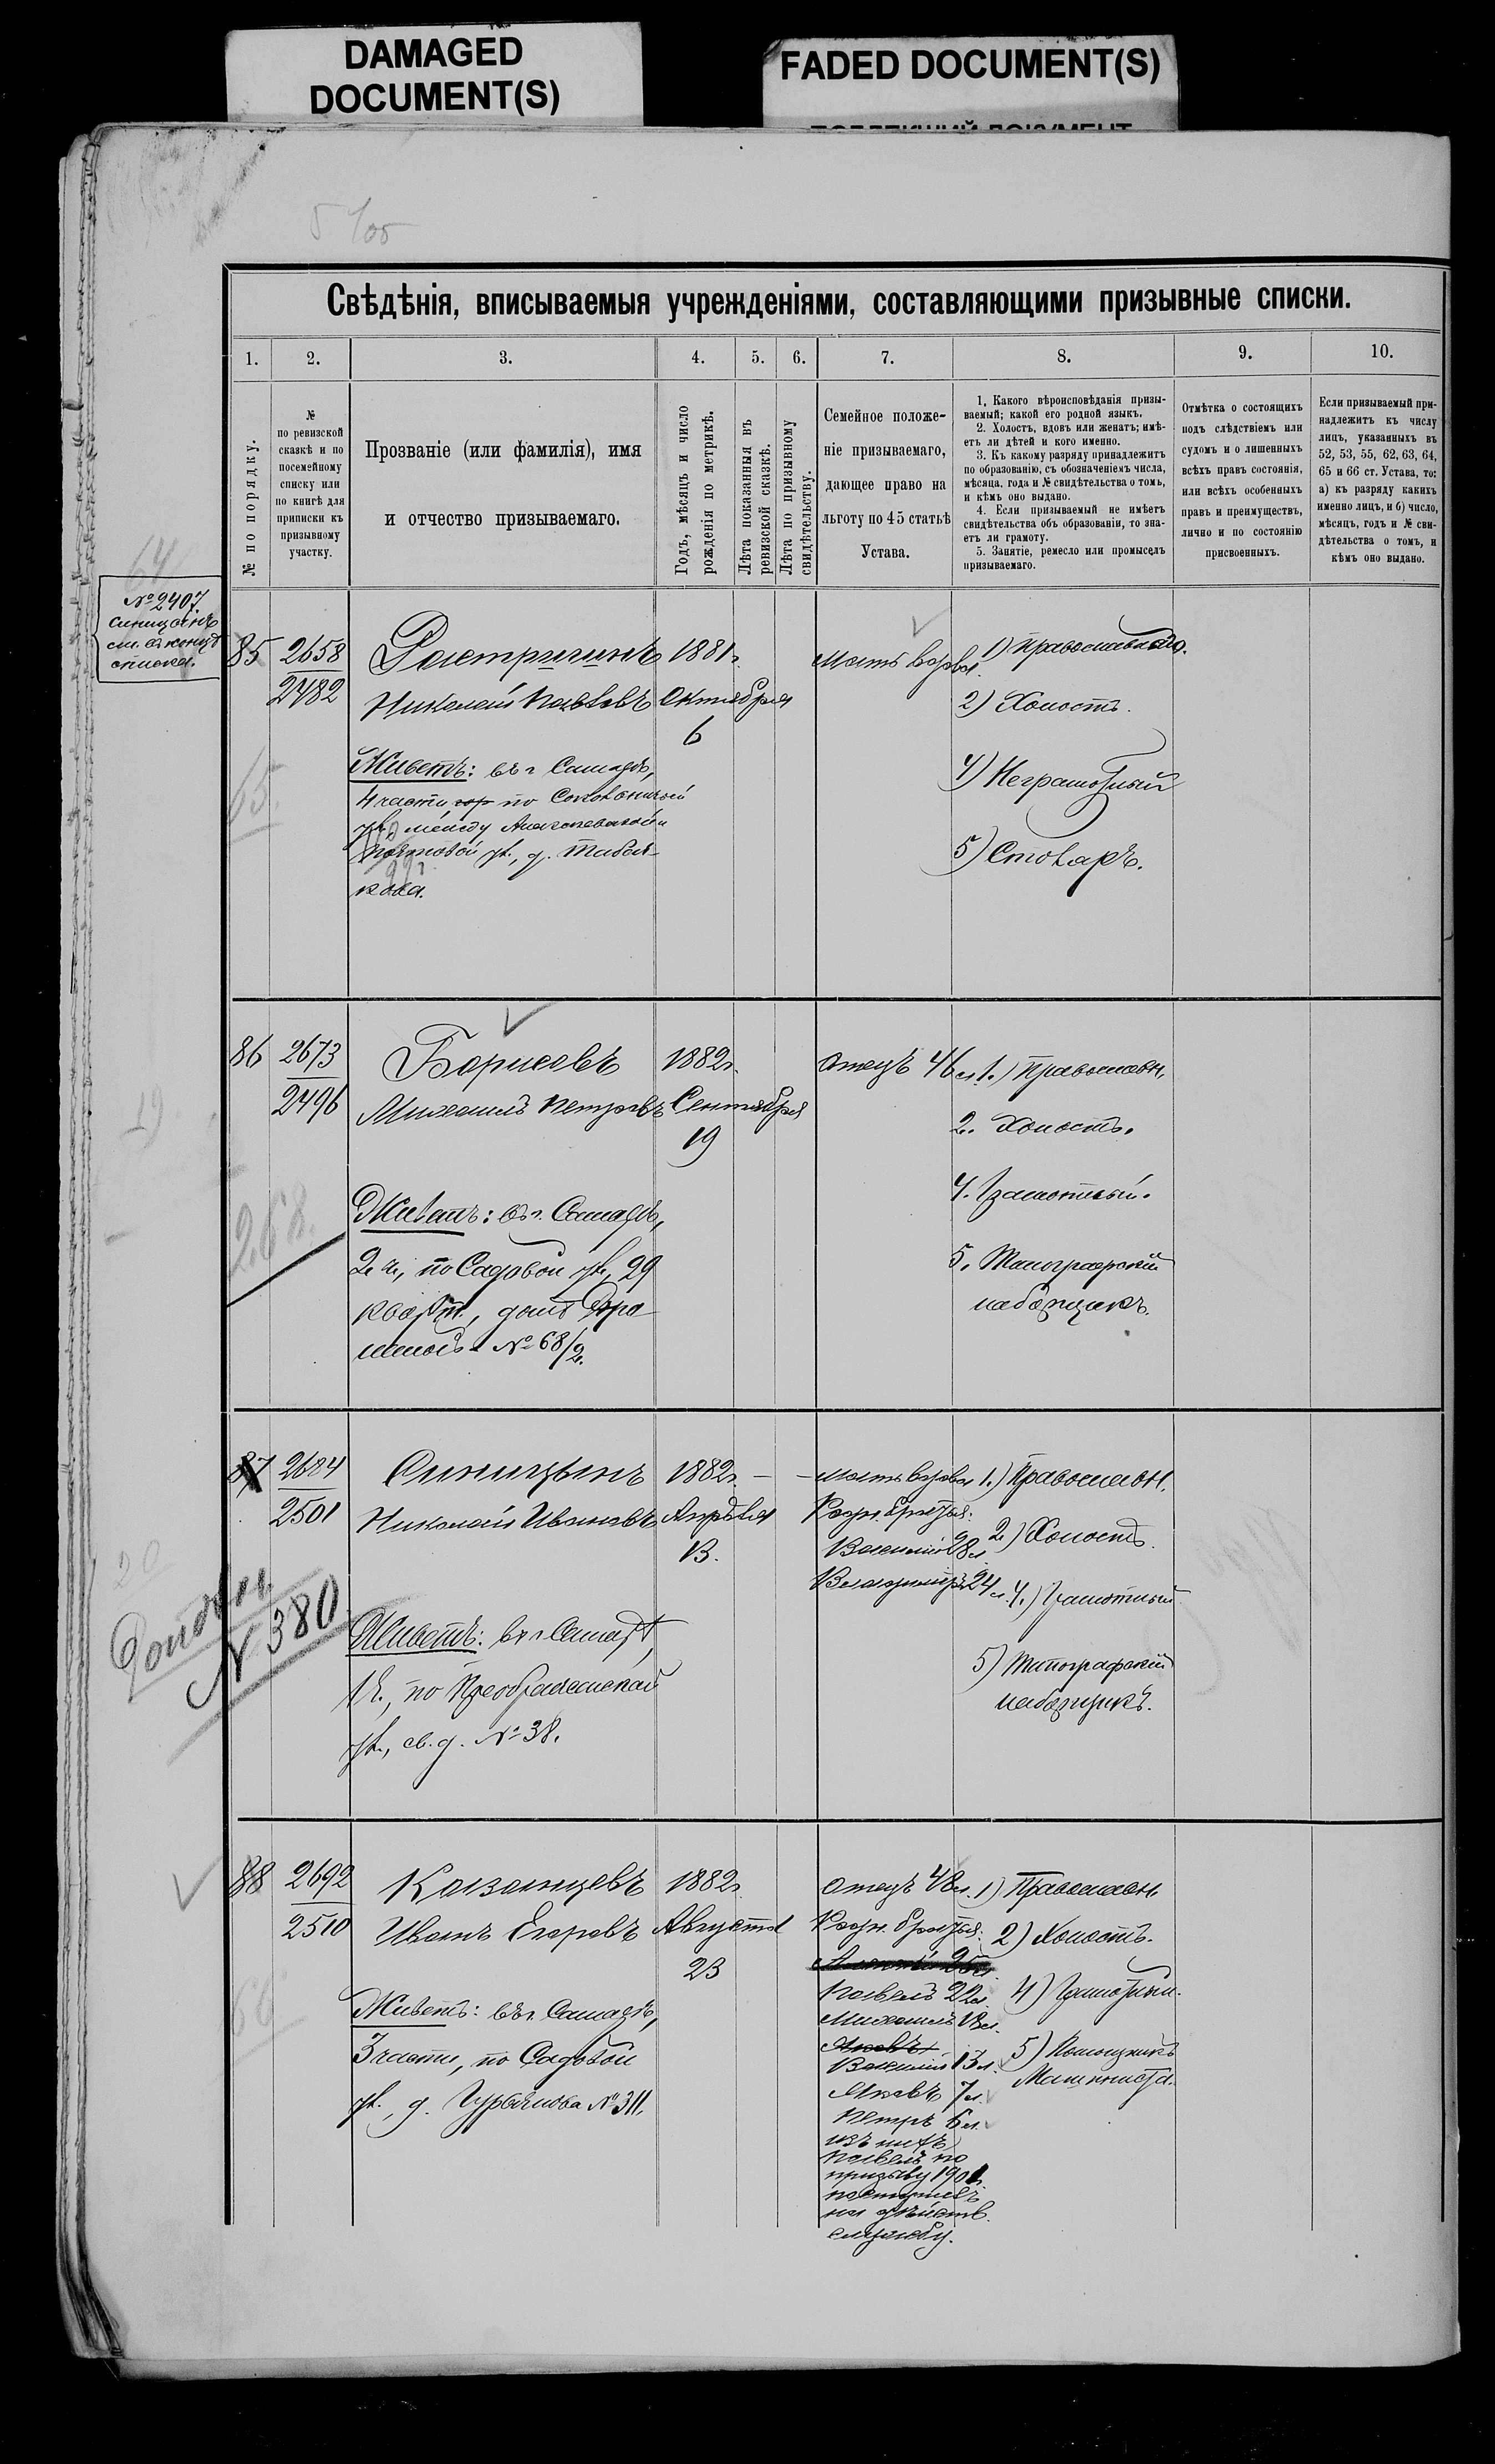 DAMAGED
DOCUMENT(S)
FADED DOCUMENT(S)
5/05
Свѣдѣнія, вписываемыя учрежденіями, составляющими призывные списки.
1.
2.
3.
4.
5.
6.
7.
8.
9.
10.
№ по порядку.
№
по ревизской
сказкѣ и по
посемейному
списку или
по книгѣ для
приписки къ
призывному
участку.
Прозваніе (или фамилія), имя
и отчество призываемаго.
Годъ, мѣсяцъ и число
рожденія по метрикѣ.
Лѣта показанныя въ
ревизской сказкѣ.
Лѣта по призывному
свидѣтельству.
Семейное положе-
ніе призываемаго,
дающее право на
льготу по 45 статьѣ
Устава.
1. Какого вѣроисповѣданія призы-
ваемый; какой его родной языкъ.
2. Холостъ, вдовъ или женатъ; имѣ-
етъ ли дѣтей и кого именно.
3. Къ какому разряду принадлежитъ
по образованію, съ обозначеніемъ числа,
мѣсяца, года и № свидѣтельства о томъ,
и кѣмъ оно выдано.
4. Если призываемый не имѣетъ
свидѣтельства объ образованіи, то зна-
етъ ли грамоту.
5. Занятіе, ремесло или промыселъ
призываемаго.
Отмѣтка о состоящихъ
подъ слѣдствіемъ или
судомъ и о лишенныхъ
всѣхъ правъ состоянія,
или всѣхъ особенныхъ
правъ и преимуществъ,
лично и по состоянію
присвоенныхъ.
Если призываемый при-
надлежитъ къ числу
лицъ, указанныхъ въ
52, 53, 55, 62, 63, 64,
65 и 66 ст. Устава, то:
а) къ разряду какихъ
именно лицъ, и б) число,
мѣсяцъ, годъ и № сви-
дѣтельства о томъ, и
кѣмъ оно выдано.
64
№ 2407
см. въ концѣ
списка.
85
2658
2482
Растригинъ
Николай Павловъ
1881 г.
Октября
6
Мать вдова.
1) Православнаго.
2) Холостъ.
4) Неграмотный
5) Столяръ.
65.
Живетъ: въ г. Самарѣ,
4 части по Соловьиной
ул. между
Почтовой ул., д. Табач-
кова.
86
2673
2496
Борисовъ
Михаилъ Петровъ
1882 г.
Сентября
19
Отецъ 46 л.
1.) Православн.
2. Холостъ.
4. Грамотный.
5. Типографскій
наборщикъ.
19
268.
Живетъ: въ г. Самарѣ,
2 ч., по Садовой ул., 29
кварт., домъ
№ 68/2.
87
2684
2501
Синицынъ
Николай Ивановъ
1882 г.
Апрѣля
13.
Мать вдова
Родн. братья:
Василій 28 л.
Владиміръ 24 л.
1.) Православн.
2.) Холостъ.
4.) Грамотный
5) Типографскій
наборщикъ.
20
№ 380
Живетъ: въ г. Самарѣ,
1 ч., по Преображенской
ул., св. д. № 38.
88
2692
2510
Казанцевъ
Иванъ Егоровъ
1882 г.
Августа
23
Отецъ 48 л.
Родн. братья:
Павелъ 22 л.
Михаилъ 18 л.
Яковъ
Василій 13 л.
Яковъ 7 л.
Петръ 6 л.
изъ нихъ
Павелъ по
призыву 1901 г.
поступилъ
на дѣйств.
службу.
1) Православн.
2) Холостъ.
4) Грамотный.
5) Помощникъ
Машиниста.
66
Живетъ: въ г. Самарѣ,
3 части, по Садовой
ул., д. Гурьянова № 311.